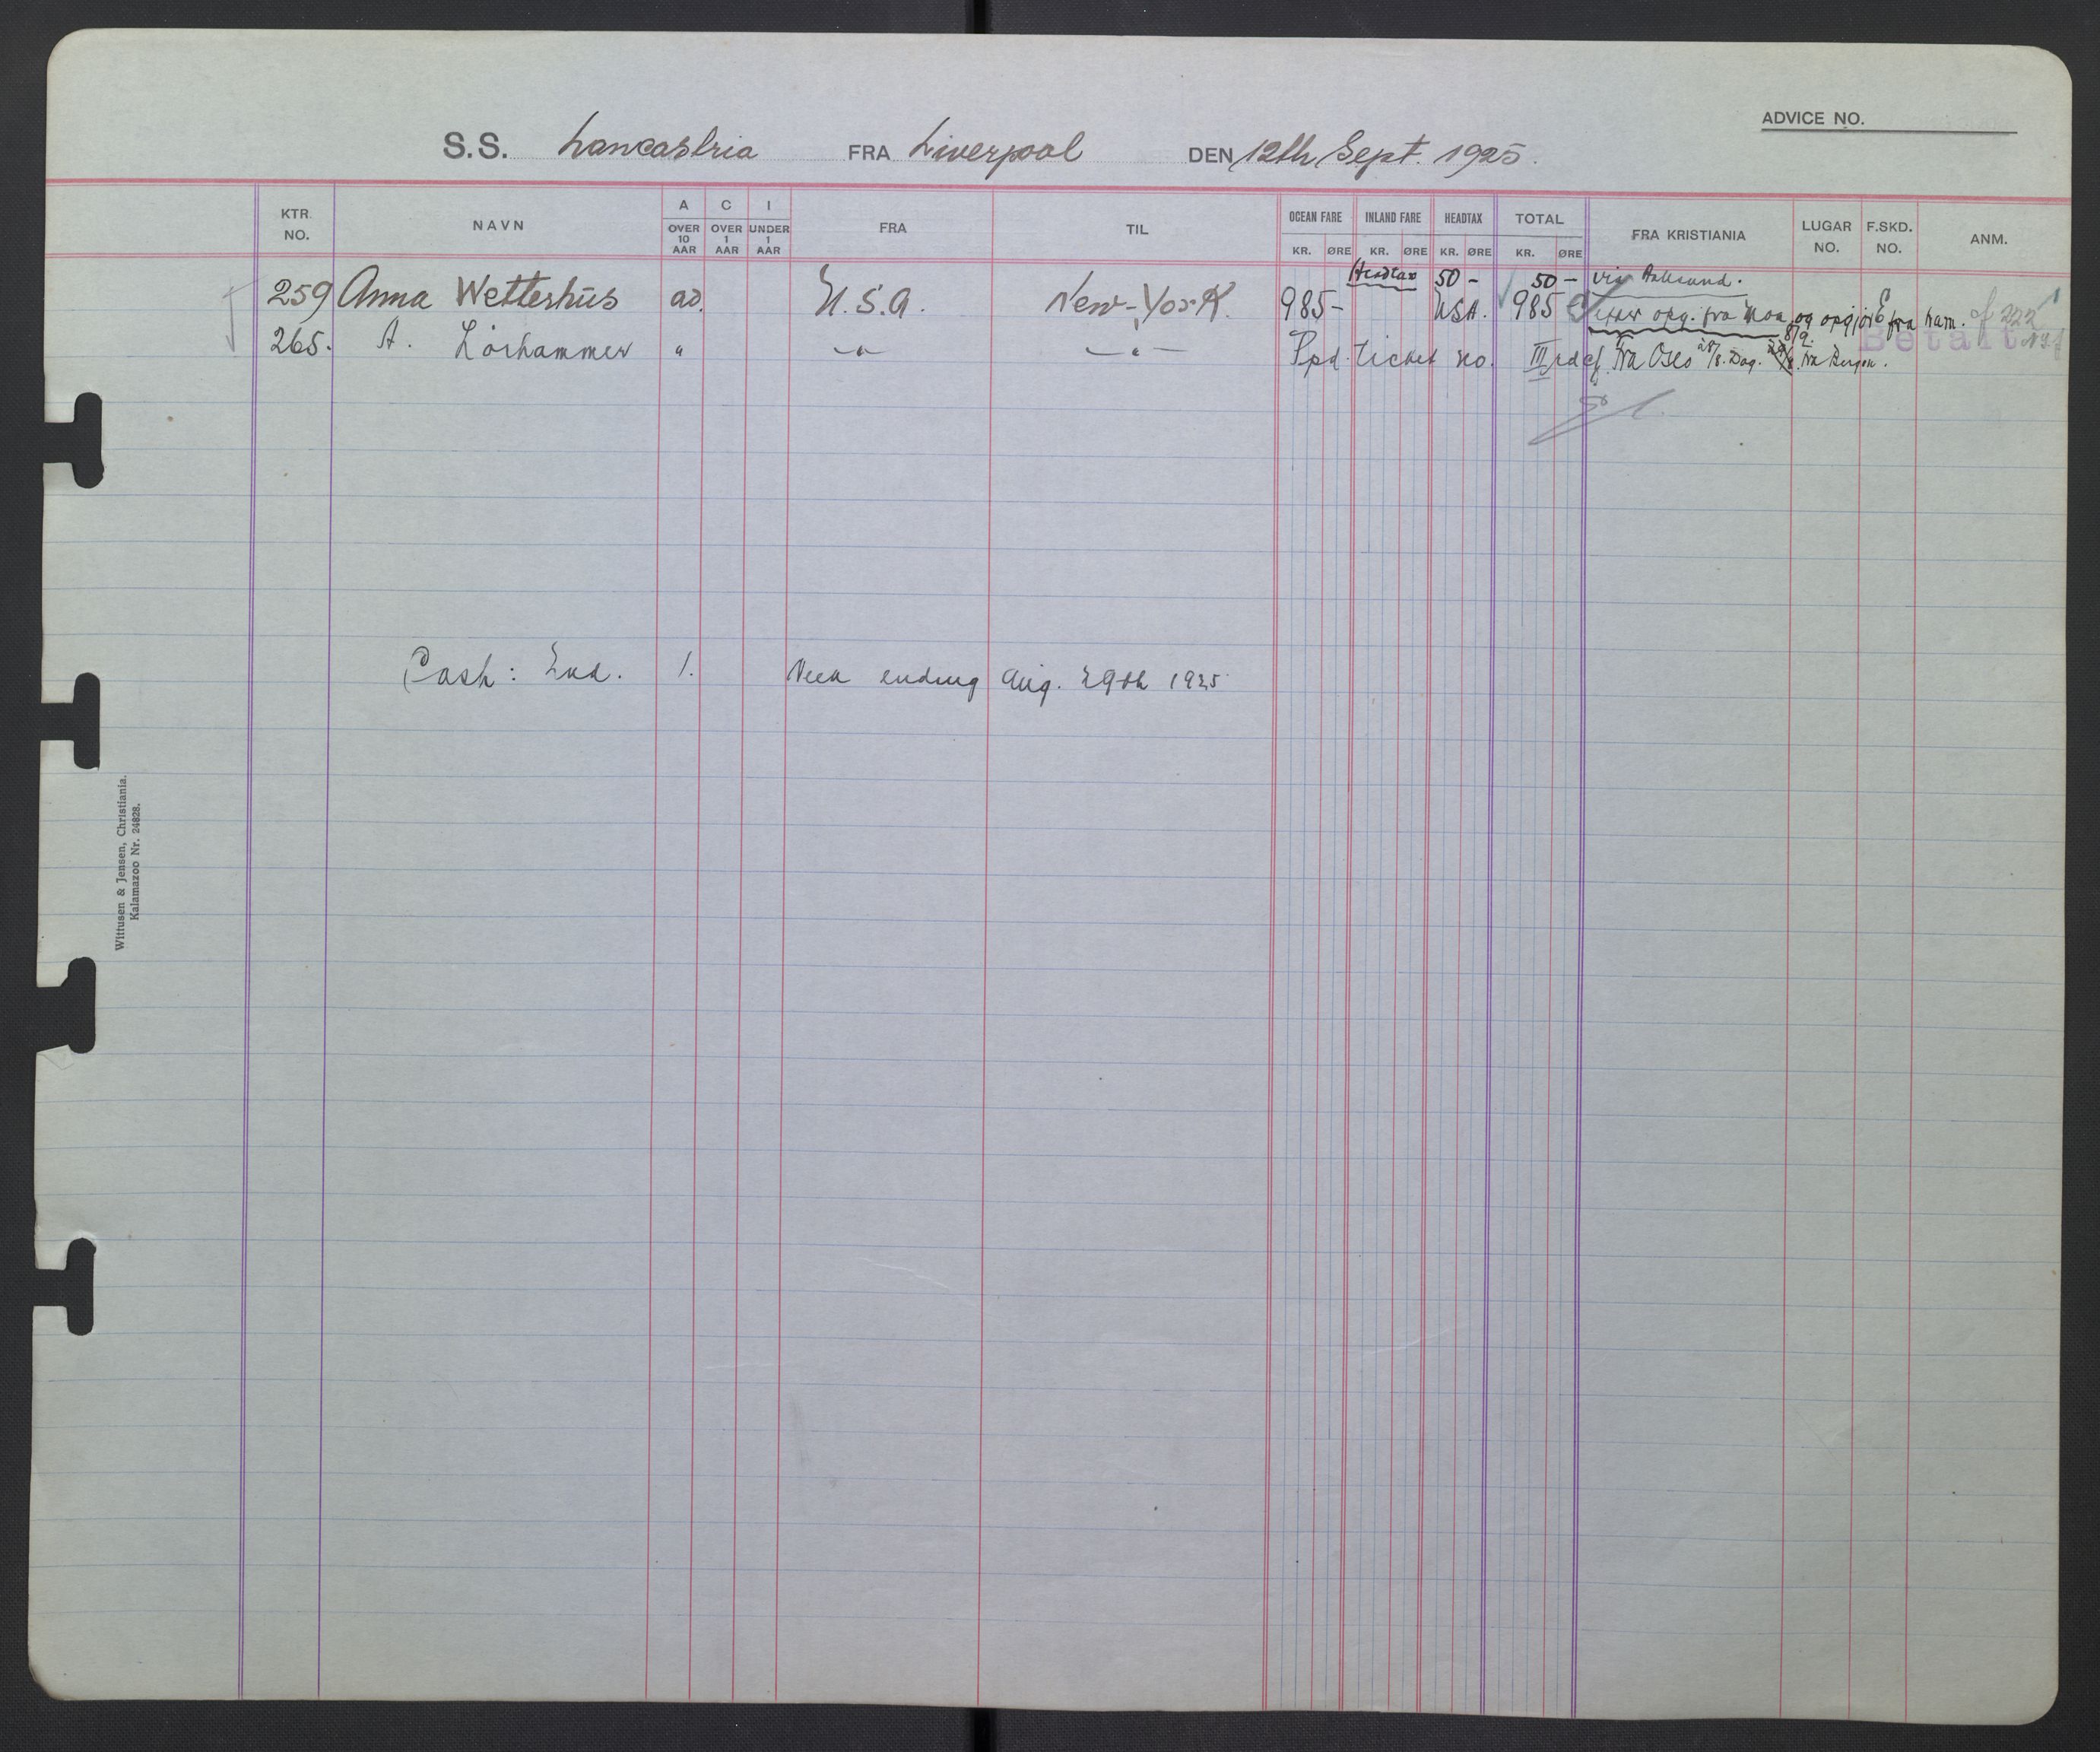 ADVICE NO.
S.S. Lancastria FRA Liverpool DEN 12th Sept. 1925.
KTR. NO. NAVN A OVER 10 AAR C OVER 1 AAR I UNDER 1 AAR FRA TIL OCEAN FARE KR. ØRE INLAND FARE KR. ØRE HEADTAX KR. ØRE TOTAL KR. ØRE FRA KRISTIANIA LUGAR NO. F.SKD. NO. ANM.
Headtax 50 - 50 - via Aalesund.
259 Anna Wetterhus ad. U.S.A. New-York. 985- USA. 985 opg. fra Moa og opgjör fra ham. 222
8/9. Betalt
265. A. Lörhammer " -"- -"- Ppd. ticket no. III rdcl. fra Oslo 28/8. Dag. fra Bergen.
Cash: End. 1. Week ending Aug. 29th 1925
Wittusen & Jensen, Christiania.
Kalamazoo Nr. 24828.